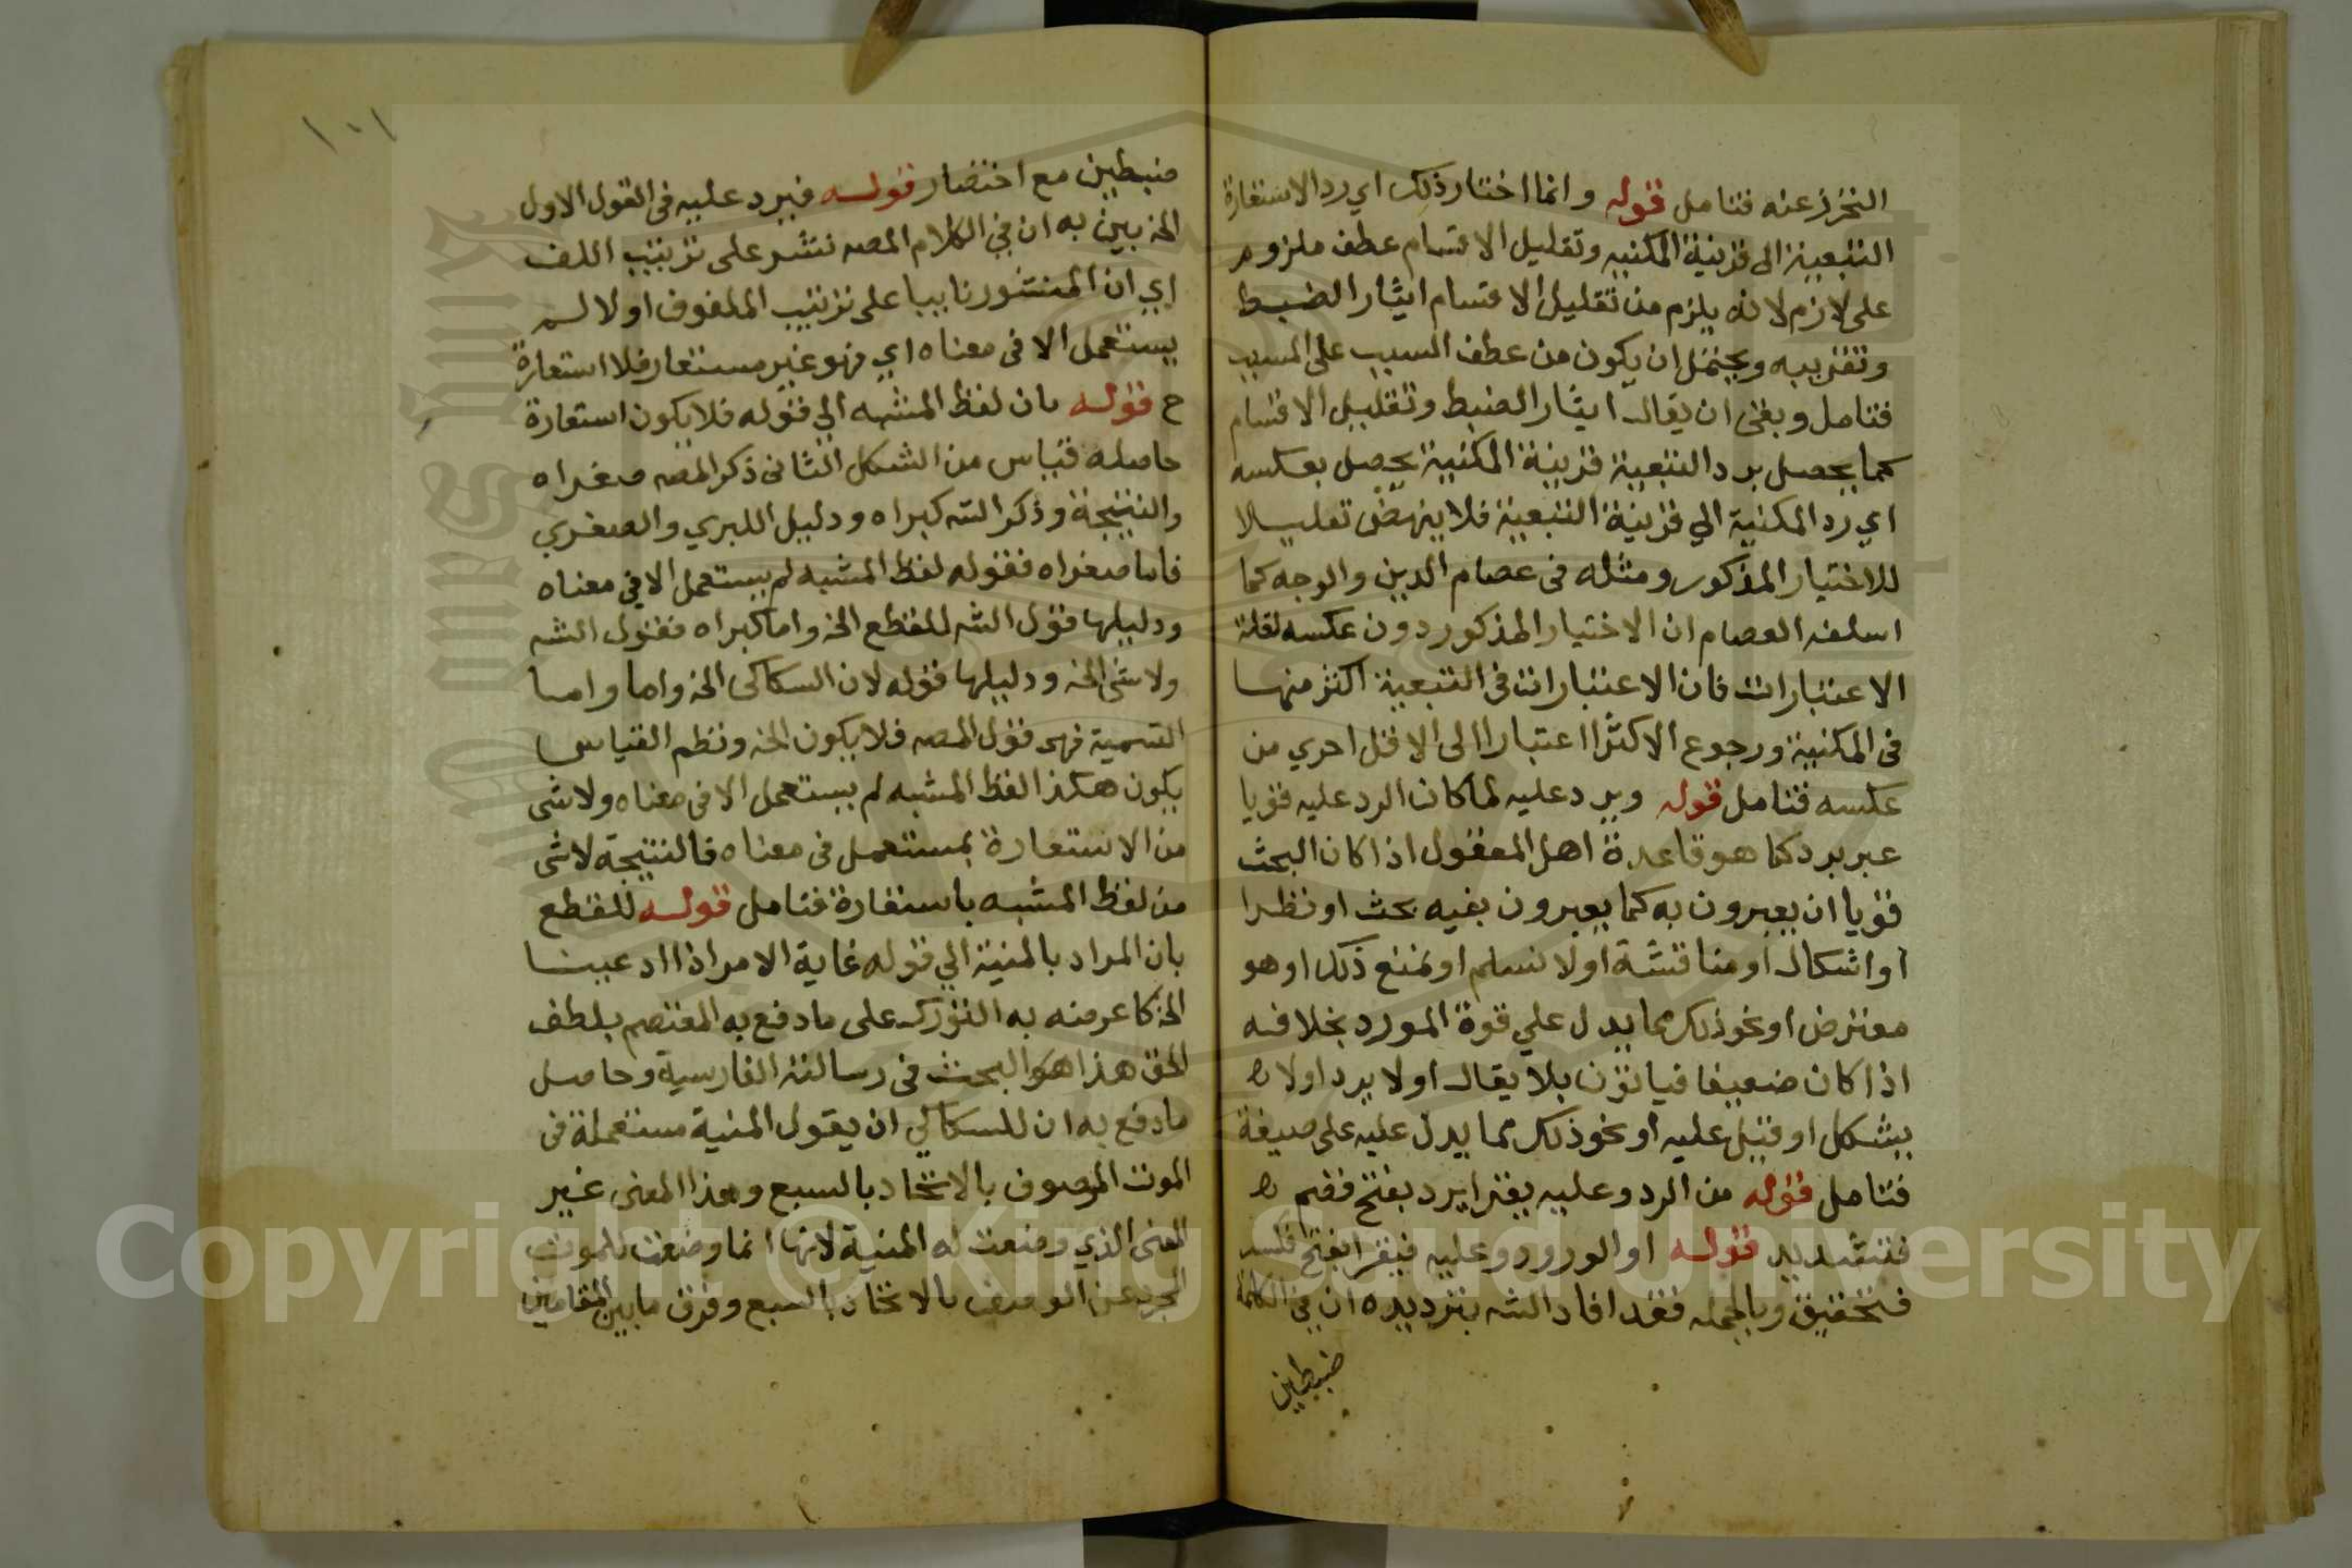 التحرز عنه فتامل قوله وانما اختار ذلك اي رد الاستعارة
التبعية الى قرينة المكنيه وتقليل الاقسام عطف ملزوم
على لازم لانه يلزم من تقليل الاقسام ايثار الضبط
وتقريبه ويحتمل ان يكون من عطف السبب على المسبب
فتامل وبقى ان يقال ايثار الضبط وتقليل الاقسام
كما يحصل برد التبعية قرينة المكنية يحصل بعكسه
اي رد المكنية الي قرينة التبعية فلا ينهض تعليلا
للاختيار المذكور ومثله فى عصام الدين والوجه كما
اسلفه العصام ان الاختيار المذكور دون عكسه لقلة
الاعتبارات فان الاعتبارات فى التبعية اكثر منها
فى المكنية ورجوع الاكثر اعتبارا الى الاقل احري من
عكسه فتامل قوله ويرد عليه لما كان الرد عليه قويا
عبر بيرد كما هو قاعدة اهل المعقول اذا كان البحث
قويا ان يعبرون به كما يعبرون بفيه بحث او نظرا
او اشكال او مناقشة او لا نسلم او نمنع ذلك او هو
معترض او نحو ذلك مما يدل علي قوة المورد بخلافه
اذا كان ضعيفا فياتون بلا يقال او لا يرد اولا
يشكل او قيل عليه او نحو ذلك مما يدل عليه على صيغة
فتامل قوله من الرد وعليه يقرا يرد بفتح فضم
فتشديد قوله او الورود وعليه فيقرا بفتح فكسر
فتخفيق وبالجمله فقد افاد الشه بترديده ان في الكلمة
ضبطين
١٠١
ضبطين مع اختصار قوله فيرد عليه فى القول الاول
الخ بين به ان في الكلام المصه نشر على ترتيب اللف
اي ان المنشور نابيا على ترتيب الملفوف اولا لم
يستعمل الا فى معناه اي فهو غير مستعار فلا استعارة
ح قوله بان لفظ المشبه الي قوله فلا يكون استعارة
حاصله قياس من الشكل الثانى ذكر المصه صغراه
والنتيجة وذكر الشه كبراه ودليل الكبري والصغري
فاما صغراه فقوله لفظ المشبه لم يستعمل الا في معناه
ودليلها قول الشه للقطع الخ واما كبراه فقول الشه
ولا شى الخ ودليلها قوله لان السكاكى الخ واما واما
التسمية فهى قول المصه فلا يكون الخ ونظم القياس
يكون هكذا لفظ المشبه لم يستعمل الا فى معناه ولا شى
من الاستعارة بمستعمل فى معناه فالنتيجة لا شى
من لفظ المشبه باستعارة فتامل قوله للقطع
بان المراد بالمنية الي قوله غاية الامر اذا ادعينا
الخ كا عرمنه به التورك على ما دفع به المعتصم بلطف
الحق هذا هو البحث فى رسالته الفارسية وحاصل
ما دفع به ان للسكاكي ان يقول المنية مستعملة فى
الموت الموصوف بالاتحاد بالسبع وهذا المعنى غير
المعنى الذي وضعت له المنية لانها انما وضعت للموت
المجرد عن الوصف بالاتحاد بالسبع وفرق ما بين المقامين
Copyright © King Saud University